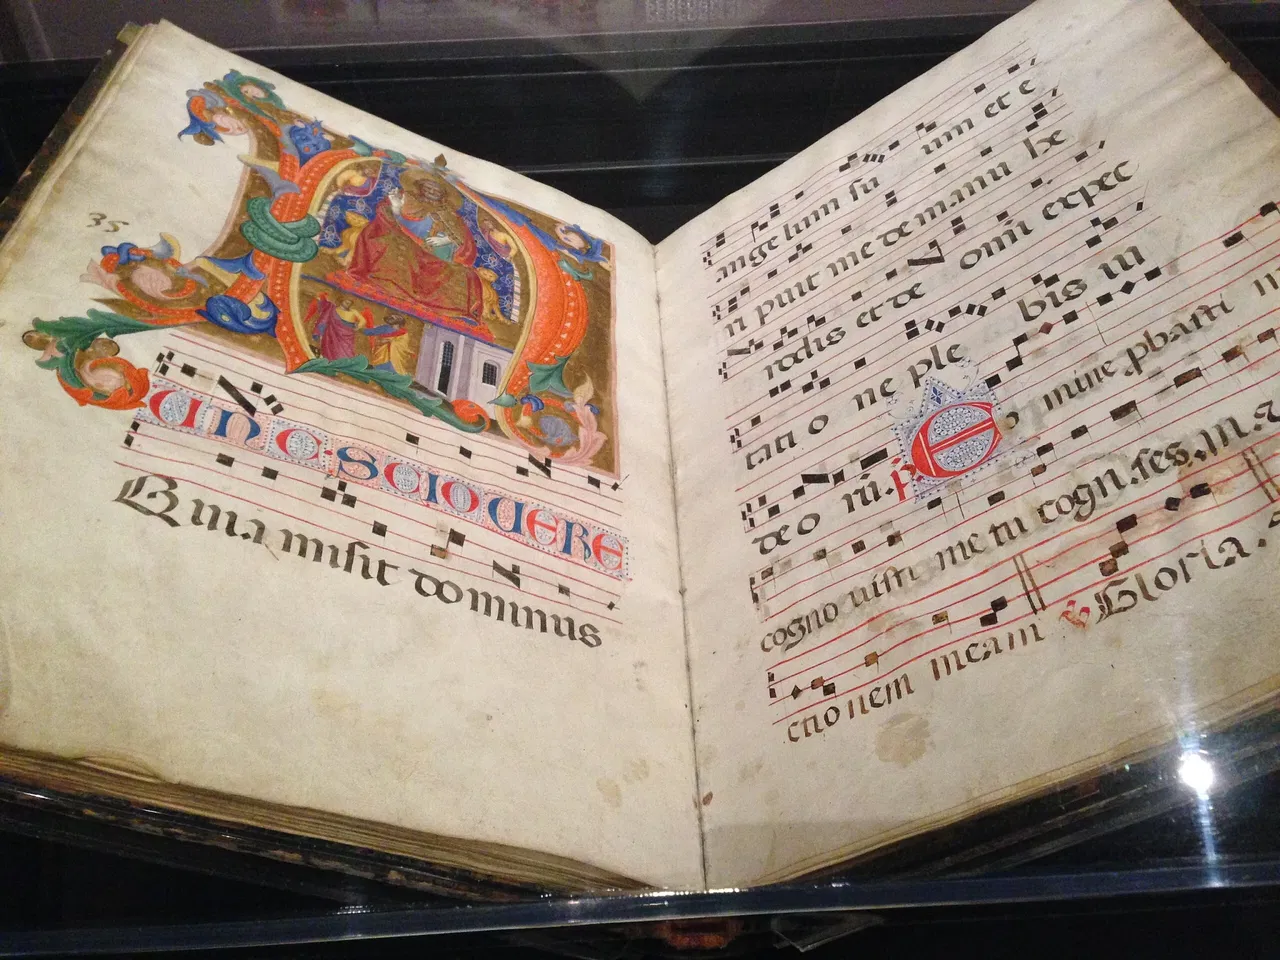 35
NUNC·SCIO UERE
Quia misit dominus
ange lum su um et e
ri puit me de manu he
rodis et de omi expec
tati o ne ple bis iu
deo rū. p. Domine ꝓbasti
cogno uisti me tu cogn. ses. m.
ctio nem meam Gloria.